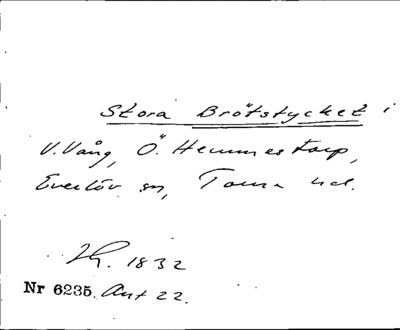 Stora Brötstycket i
V. Vång, Ö. Hemmestorp,
Everlöv sn, Torna hd.
1832
Nr 6235. Akt 22.